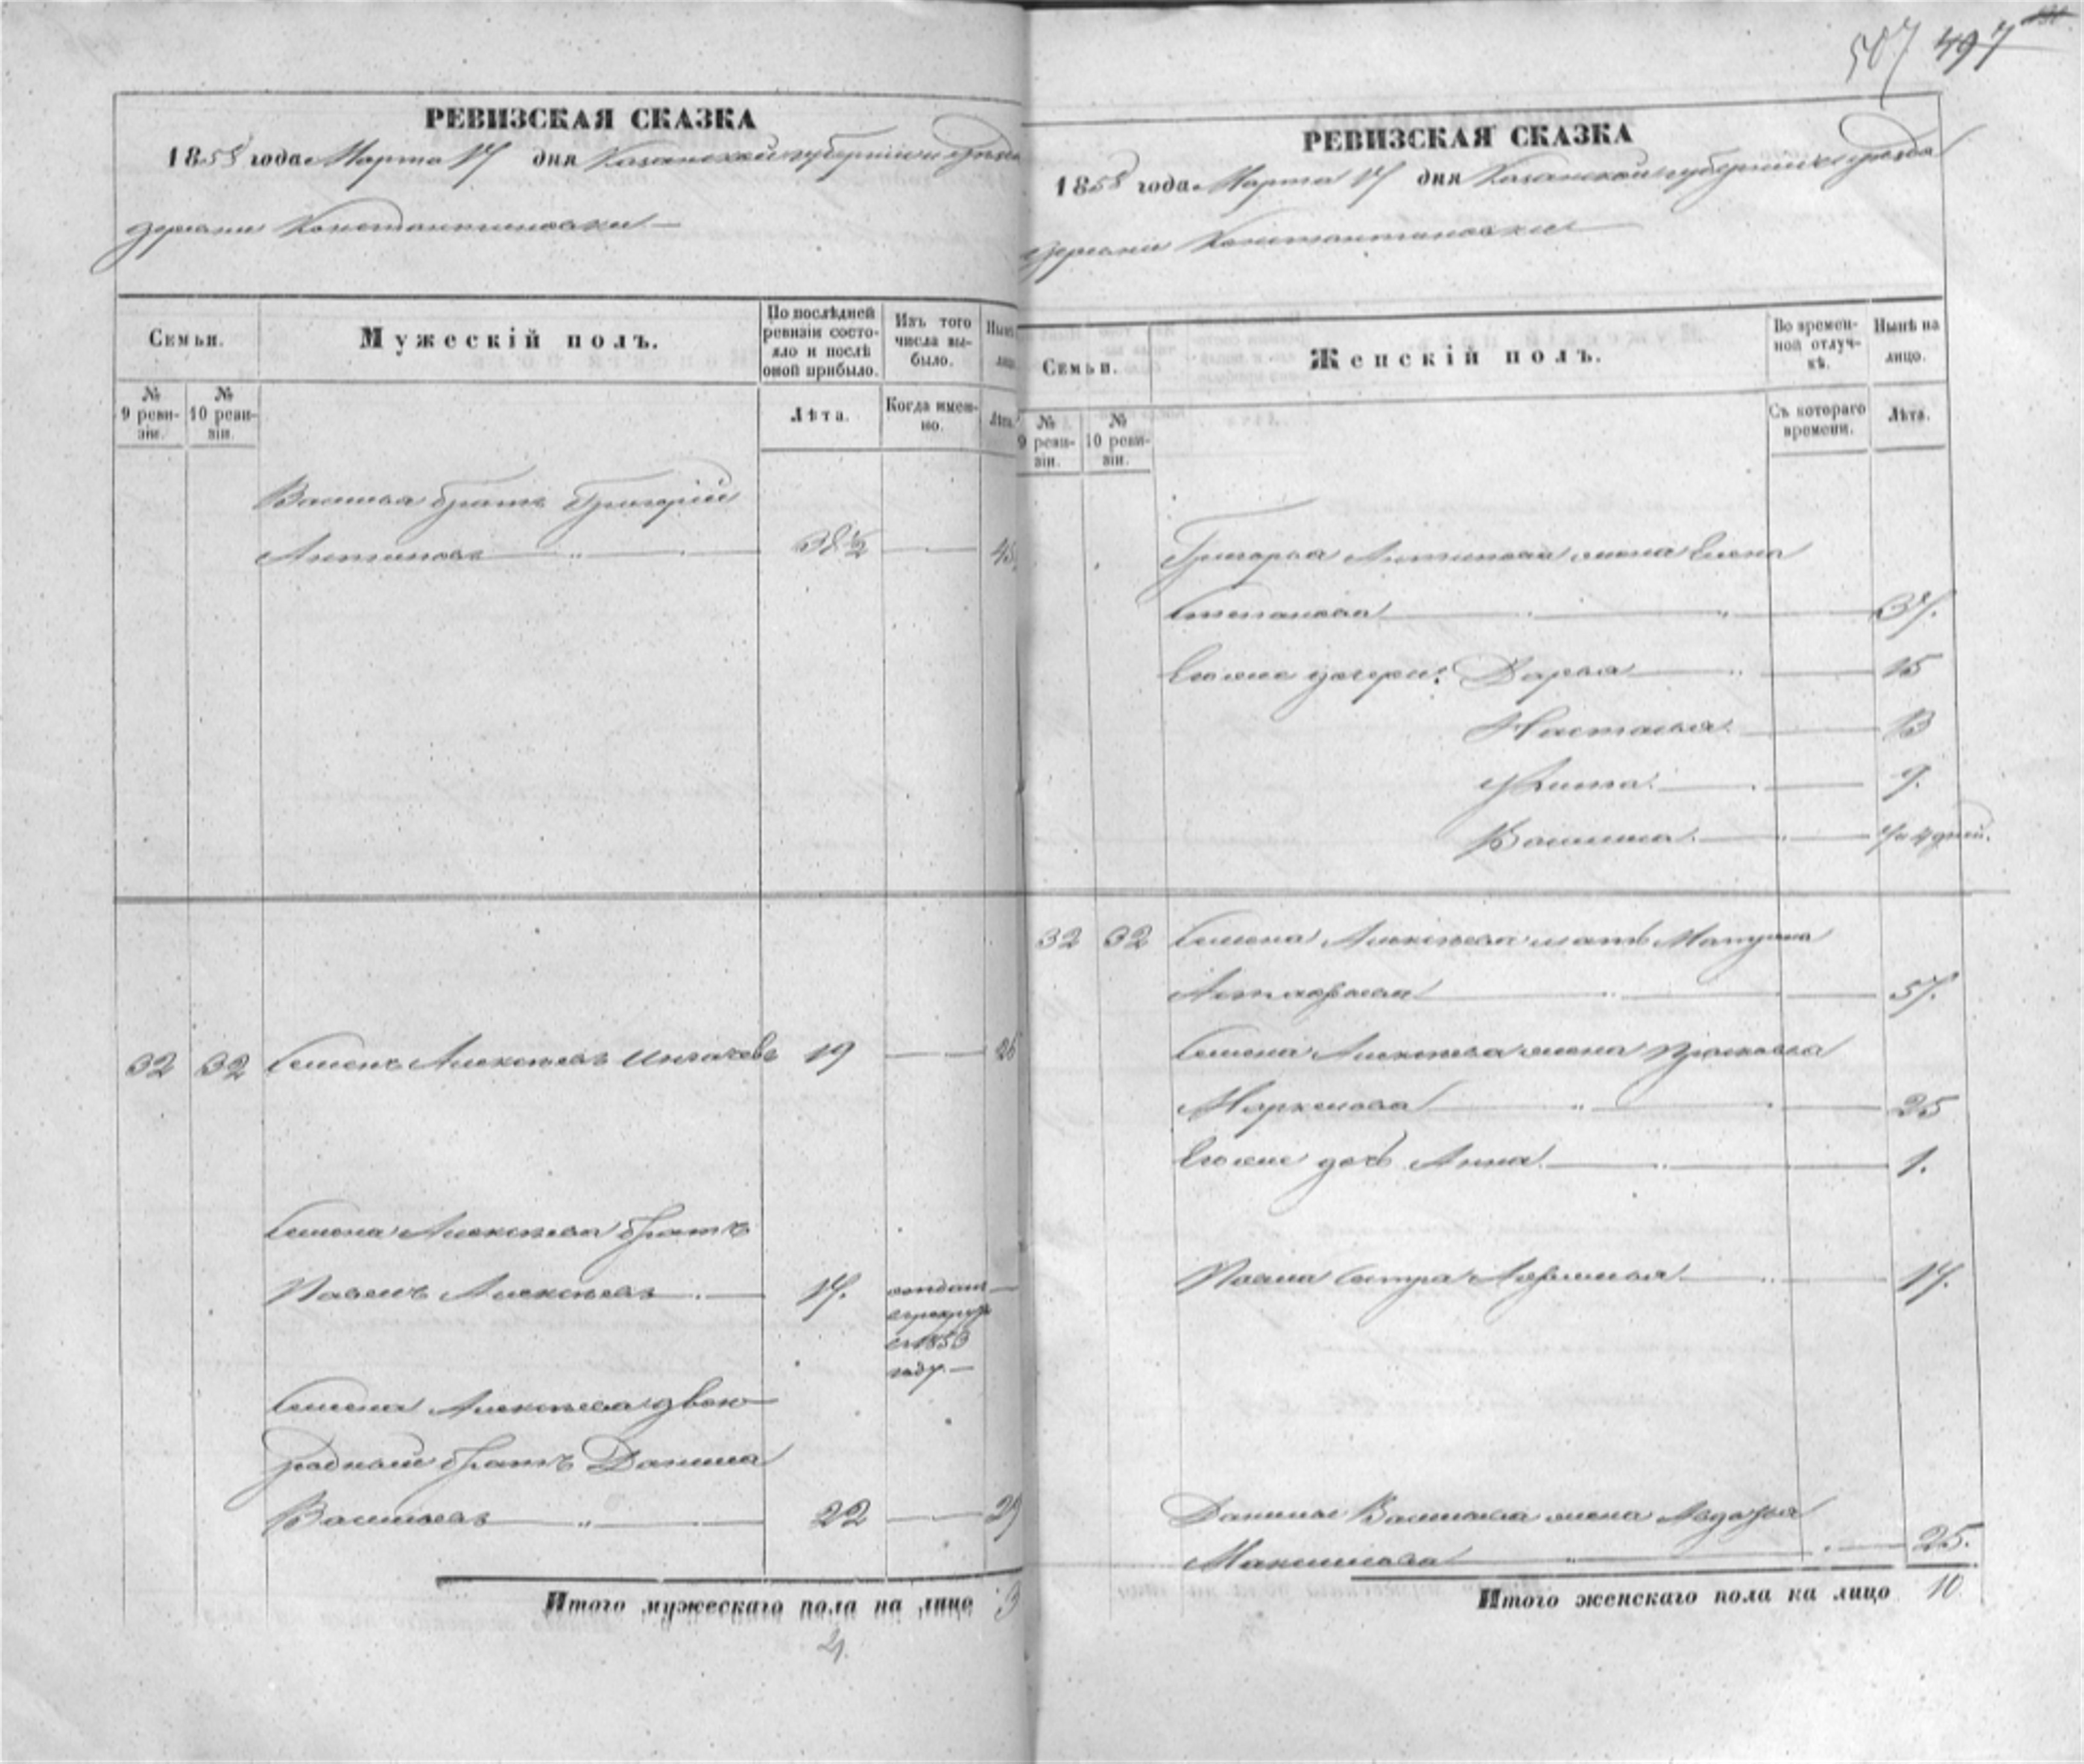 507 497
РЕВИЗСКАЯ СКАЗКА
1858 года Марта 17 дня Казанской губернии и уезда
деревни Константиновки
Семьи.
Мужескій полъ.
По послѣдней ревизіи состояло и послѣ оной прибыло.
Изъ того числа выбыло.
Нынѣ лицо
№ 9 ревизіи.
№ 10 ревизіи.
Лѣта.
Когда именно.
Лѣта.
Василья братъ Григорій
Антиповъ 38½ 45
32 32 Семенъ Алексѣевъ 19 26
Семена Алексѣева братъ
Павелъ Алексѣевъ 17.
отданъ
в рекруты
въ 1853
году.
Семена Алексѣева двою-
родный братъ Данила
Васильевъ 22 29
Итого мужескаго пола на лицо 3
РЕВИЗСКАЯ СКАЗКА
1858 года Марта 17 дня Казанской губерніи и уезда
деревни Константиновки
Семьи.
Женскій полъ.
Во временной отлучкѣ.
Нынѣ на лицо.
№ 9 ревизіи.
№ 10 ревизіи.
Съ котораго времени.
Лѣта.
Григорья Антипова жена Елена
Степанова 37.
Ево же дочери: Дарья 15
Настасья 13
9.
Василиса дней.
32 32 Семена Алексѣева мать Матрена
57.
Семена Алексѣева жена Прасковья
Маркелова 25
Ево же дочь Анна 1.
Павла сестра Афимья 17.
Данилы Васильева жена Авдотья
Максимова 25.
Итого женскаго пола на лицо 10.